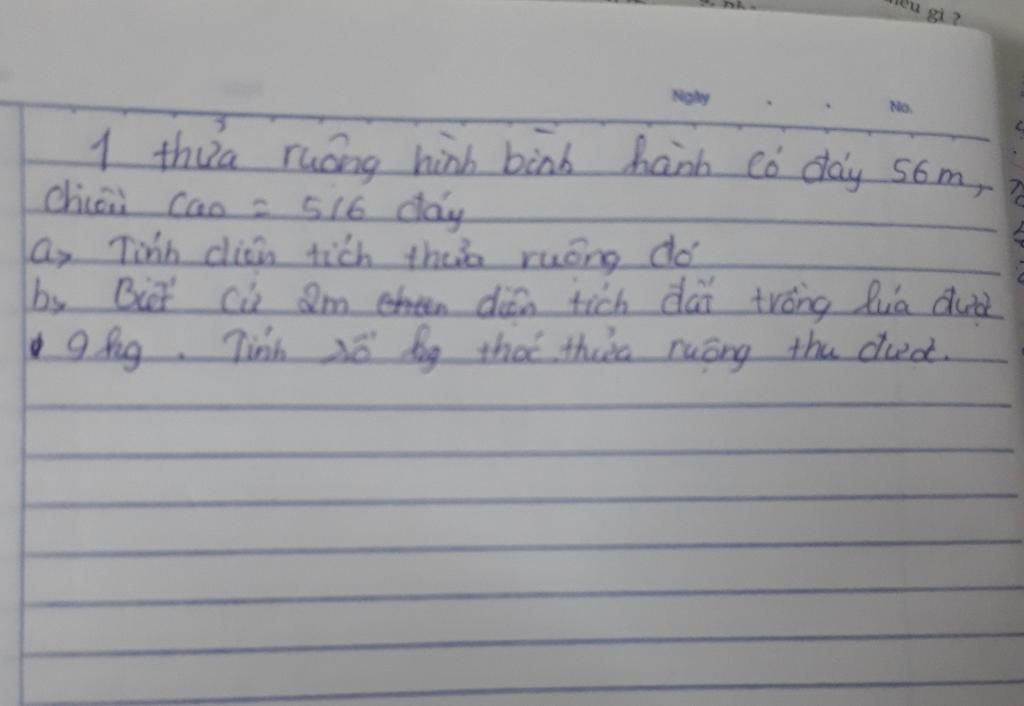 iêu gì ?
Ngày . . No.
1 thửa ruông hình bình hành có đáy 56m,
chiều cao = 5/6 đáy
a, Tính diện tích thửa ruông đó
b, Biết cứ 2m diện tích đất trồng lúa được
9 kg . Tính số kg thóc thửa ruộng thu được.